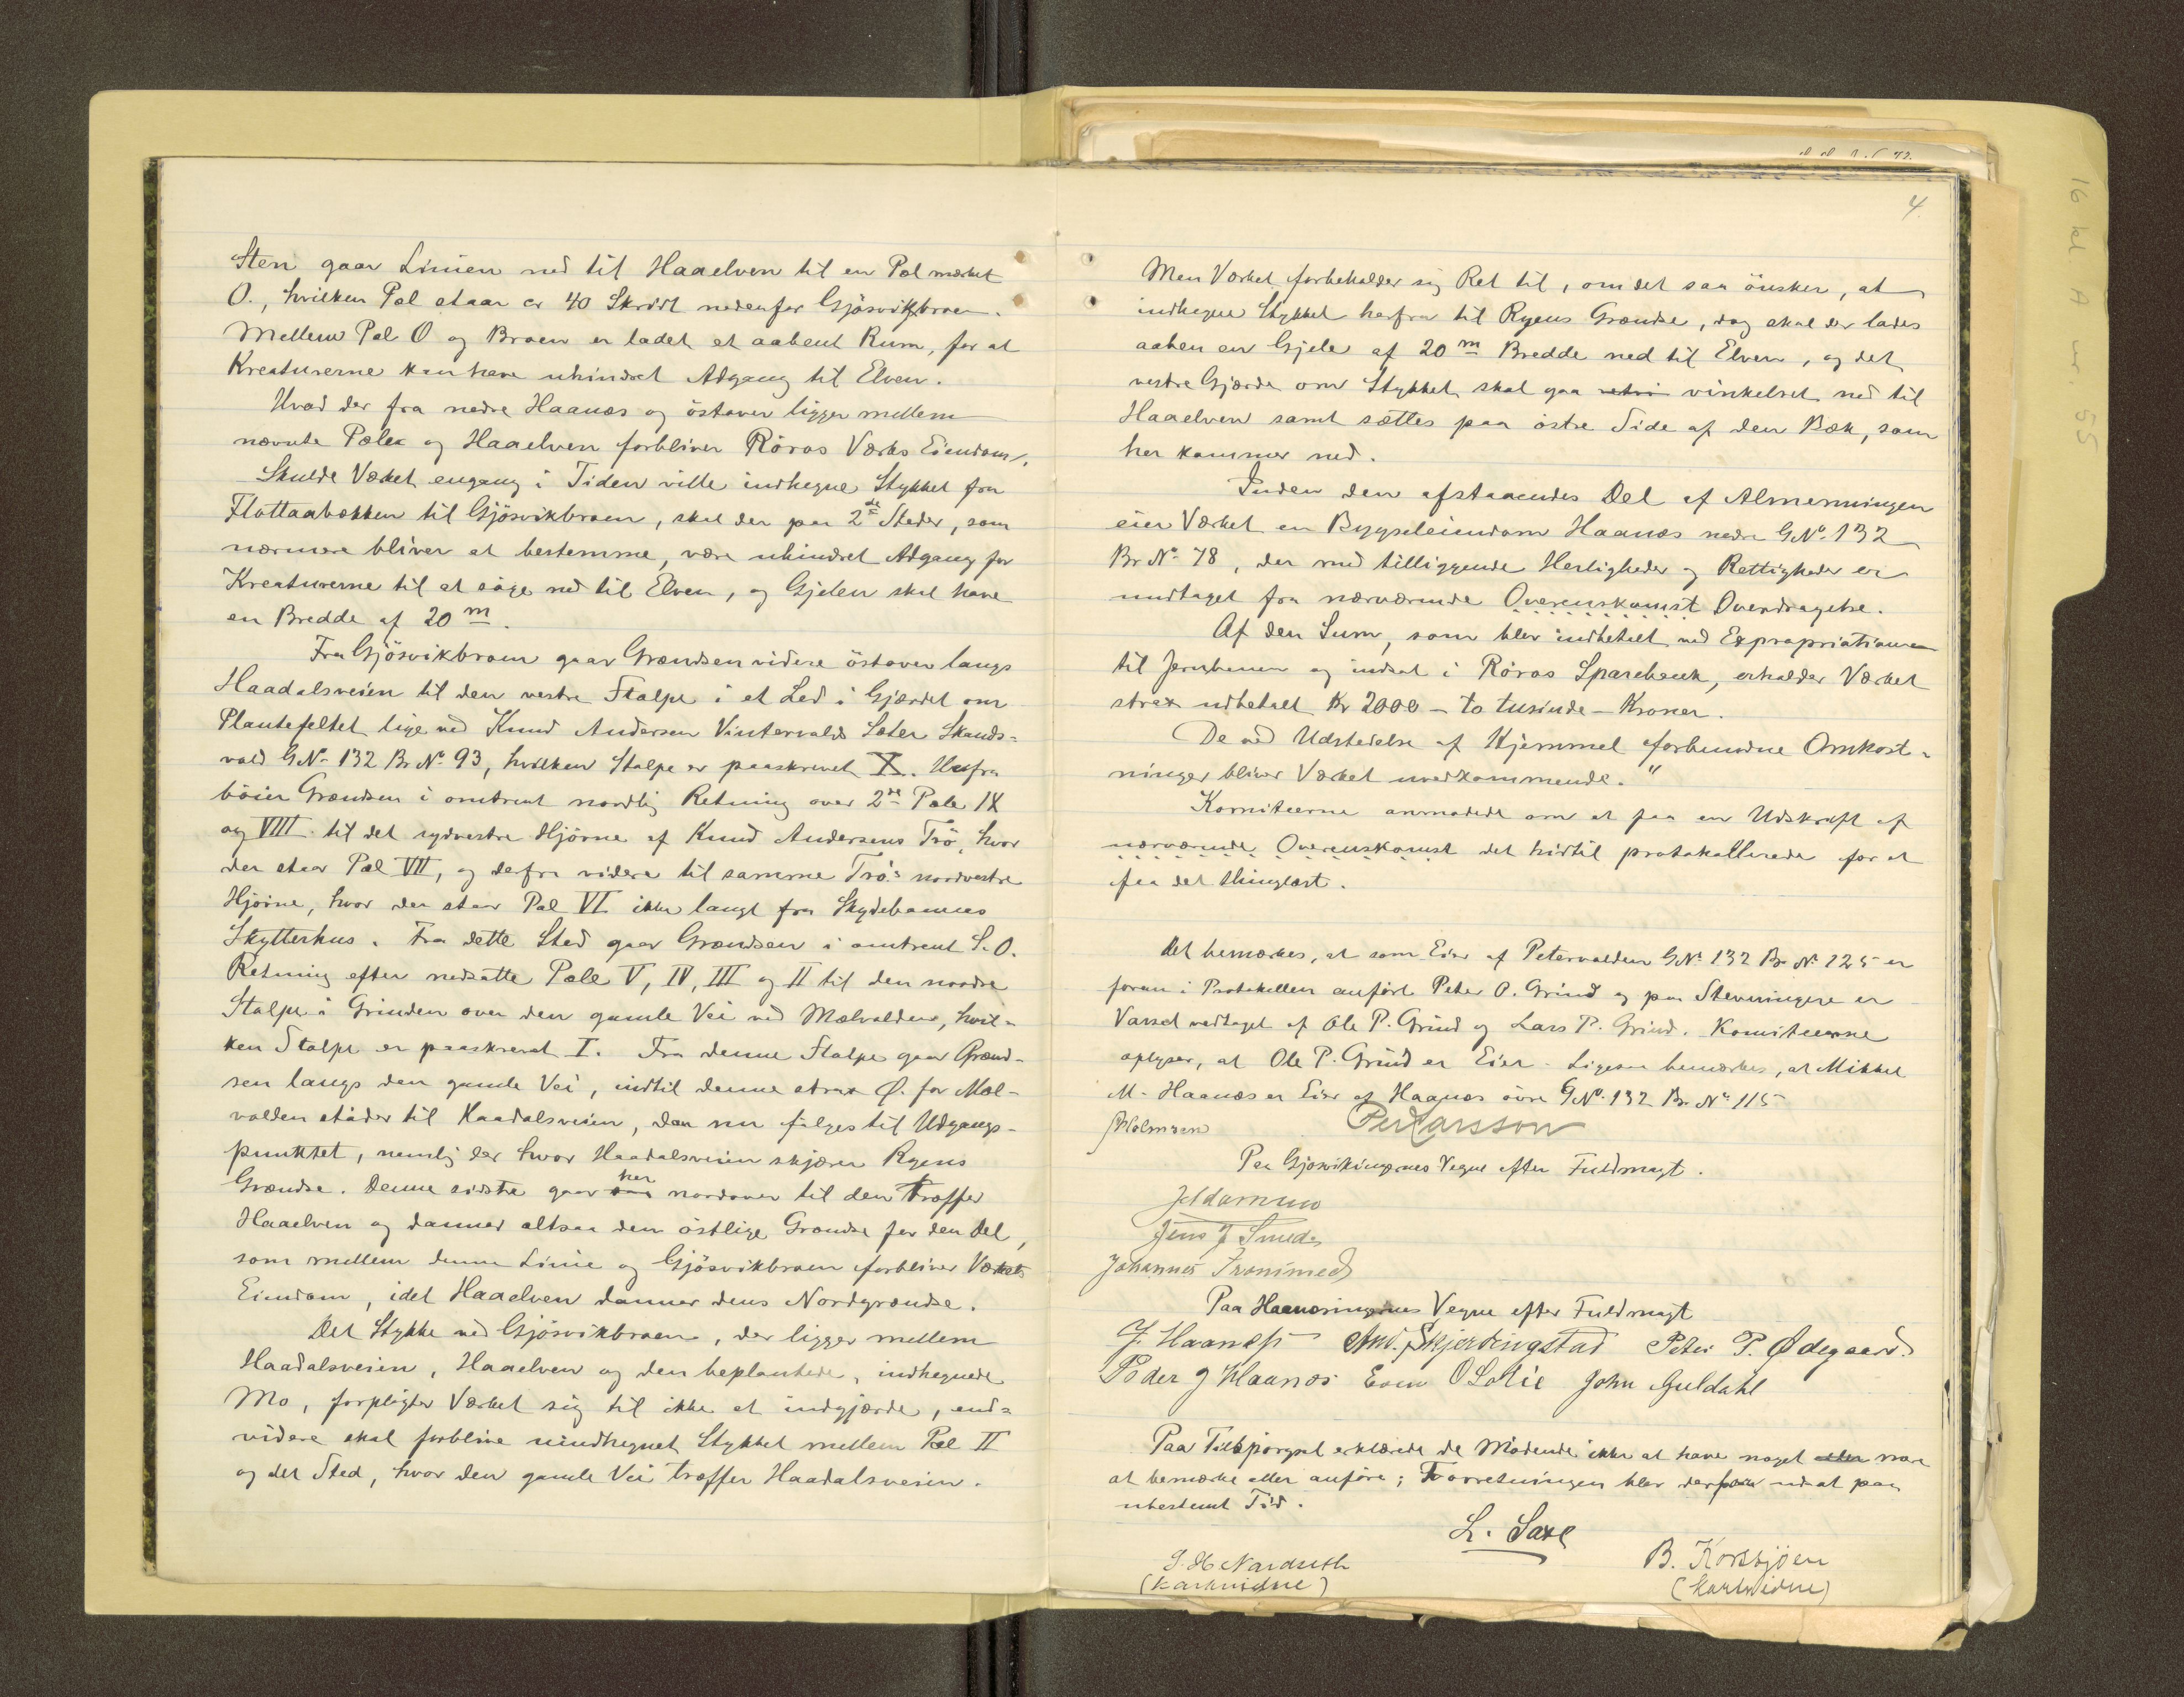 Sten gaar Linien ned til Haaelven til en Pæl mærket
O., hvilken Pæl staar cr 40 Skridt nedenfor Gjösvikbroen.
Mellem Pæl O og Broen er ladet et aabent Rum, for at
Kreaturerne kan have uhindret Adgang til Elven.
Hvad der fra nedre Haanæs og östover ligger mellem
nævnte Pæler og Haaelven forbliver Röros Værks Eiendom.
Skulde Værket engang i Tiden ville indhegne Stykket fra
Flottaabækken til Gjösvikbroen, skal der paa 2de Steder, som
nærmere bliver at bestemme, være uhindret Adgang for
Kreaturerne til at söge ned til Elven, og Gjelen skal have
en Bredde af 20 m.
Fra Gjösvikbroen gaar Grændsen videre östover langs
Haadalsveien til den vestre Stolpe i et Led i Gjærdet om
Plantefeltet lige ved Knud Andersen Vintervolds Sæter Skands-
vold GNo 132 BrNo 93, hvilken Stolpe er paaskrevet X. Herfra
böier Grændsen i omtrent nordlig Retning over 2de Pæle IX
og VIII til det sydvestre Hjörne af Knud Andersens Trö, hvor
der staar Pæl VII, og derfra videre til samme Trö's nordvestre
Hjörne, hvor der staar Pæl VI ikke langt fra Skydebanens
Skytterhus. Fra dette Sted gaar Grændsen i omtrent S.O.
Retning efter nedsatte Pæle V, IV, III og II til den nordre
Stolpe i Grinden over den gamle Vei ved Mælvolden, hvil-
ken Stolpe er paaskrevet I. Fra denne Stolpe gaar Grænd-
sen langs den gamle Vei, indtil denne strax Ø. for Mæl-
volden stöder til Haadalsveien, der nu fölges til Udgangs-
punktet, nemlig der hvor Haadalsveien skjærer Ryens
Grændse. Denne sidste gaar her nordover til den træffer
Haaelven og danner altsaa den östlige Grændse for den Del,
som mellem denne Linie og Gjösvikbroen forbliver Værkets
Eiendom, idet Haaelven danner dens Nordgrændse.
Det Stykke ved Gjösvikbroen, der ligger mellem
Haadalsveien, Haaelven og den beplantede, indhegnede
Mo, forpligter Værket sig til ikke at indgjærde, end-
videre skal forblive uindhegnet Stykket mellem Pæl II
og det Sted, hvor den gamle Vei træffer Haadalsveien.
4.
Men Værket forbeholder sig Ret til, om det saa önsker, at
indhegne Stykket herfra til Ryens Grændse, dog skal der lades
aaben en Gjele af 20 m Bredde ned til Elven, og det
vestre Gjærde om Stykket skal gaa vinkelret ned til
Haaelven samt sættes paa östre Side af den Bæk, som
her kommer ned.
Inden den afstaaendes Del af Almenningen
eier Værket en Bygseleiendom Haanæs nedre GNo 132
BrNo 78, der med tilliggende Herligheder og Rettigheder er
undtaget fra nærværende Overenskomst Overdragelse.
Af den Sum, som blev indbetalt ved Expropriationen
til Jernbanen og indsat i Röros Sparebank, erholder Værket
strax udbetalt Kr 2000 - to tusinde - Kroner.
De ved Udstedelse af Hjemmel forbundne Omkost-
ninger bliver Værket uvedkommende."
Komiteerne anmodede om at faa en Udskrift af
nærværende Overenskomst det hidtil protokollerede for at
faa det thinglæst.
Det bemærkes, at som Eier af Petervolden GNo 132 BrNo 125 er
foran i Protokollen anfört Peter O. Grind og paa Stevningen er
Varsel vedtaget af Ole P. Grind og Lars P. Grind. Komiteerne
oplyser, at Ole P. Grind er Eier. Ligesaa bemærkes, at Mikkel
M. Haanæs er Eier af Haanæs övre GNo 132 BrNo 115
Holmsen Per Larsson
Paa Gjösvikingernes Vegne efter Fuldmagt.
Jens J Smed
Johannes Tronsmed
Paa Haanæsingernes Vegne efter Fuldmagt
J Haanæs And. Skjerdingstad Peter P. Ødegaard
Peder J Haanæs Even O Lolie John Guldahl
Paa Tilspörgsel erklærede de Mödende ikke at have noget mere
at bemærke eller anföre; Forretningen blev derpaa udsat paa
ubestemt Tid.
L. Saxe
J. H. Nordseth B. Korssjöen
(kartvidne) (kartvidne)
16 kl A nr 55